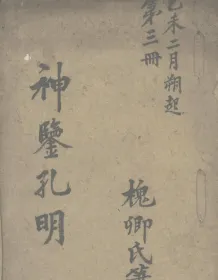 己未二月朔起
第三冊
神鑒孔明
槐卿氏